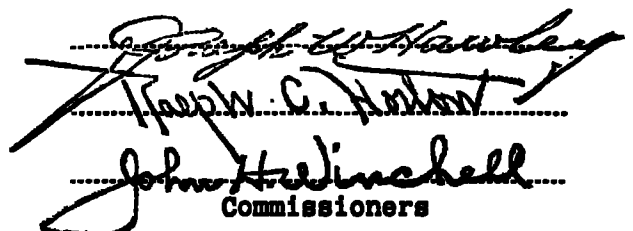 Ralph W. Hawley
Ralph C. Horton
John H. Winchell
Commissioners